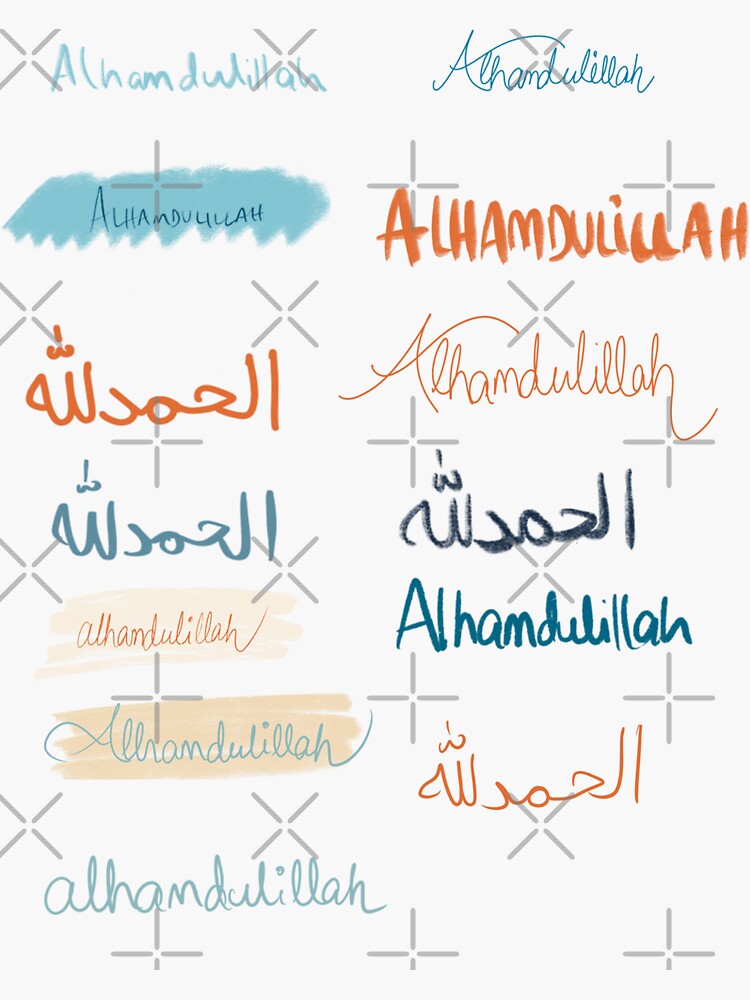 Alhamdulillah
Alhandulillah
ALHAMDULILLAH
ALHAMDULiLLAH
الحمدلله
Alhamdulillah
الحمدلله
الحمدلله
alhamdulillah
Alhamdulillah
Alhamdulillah
الحمدلله
alhamdulillah